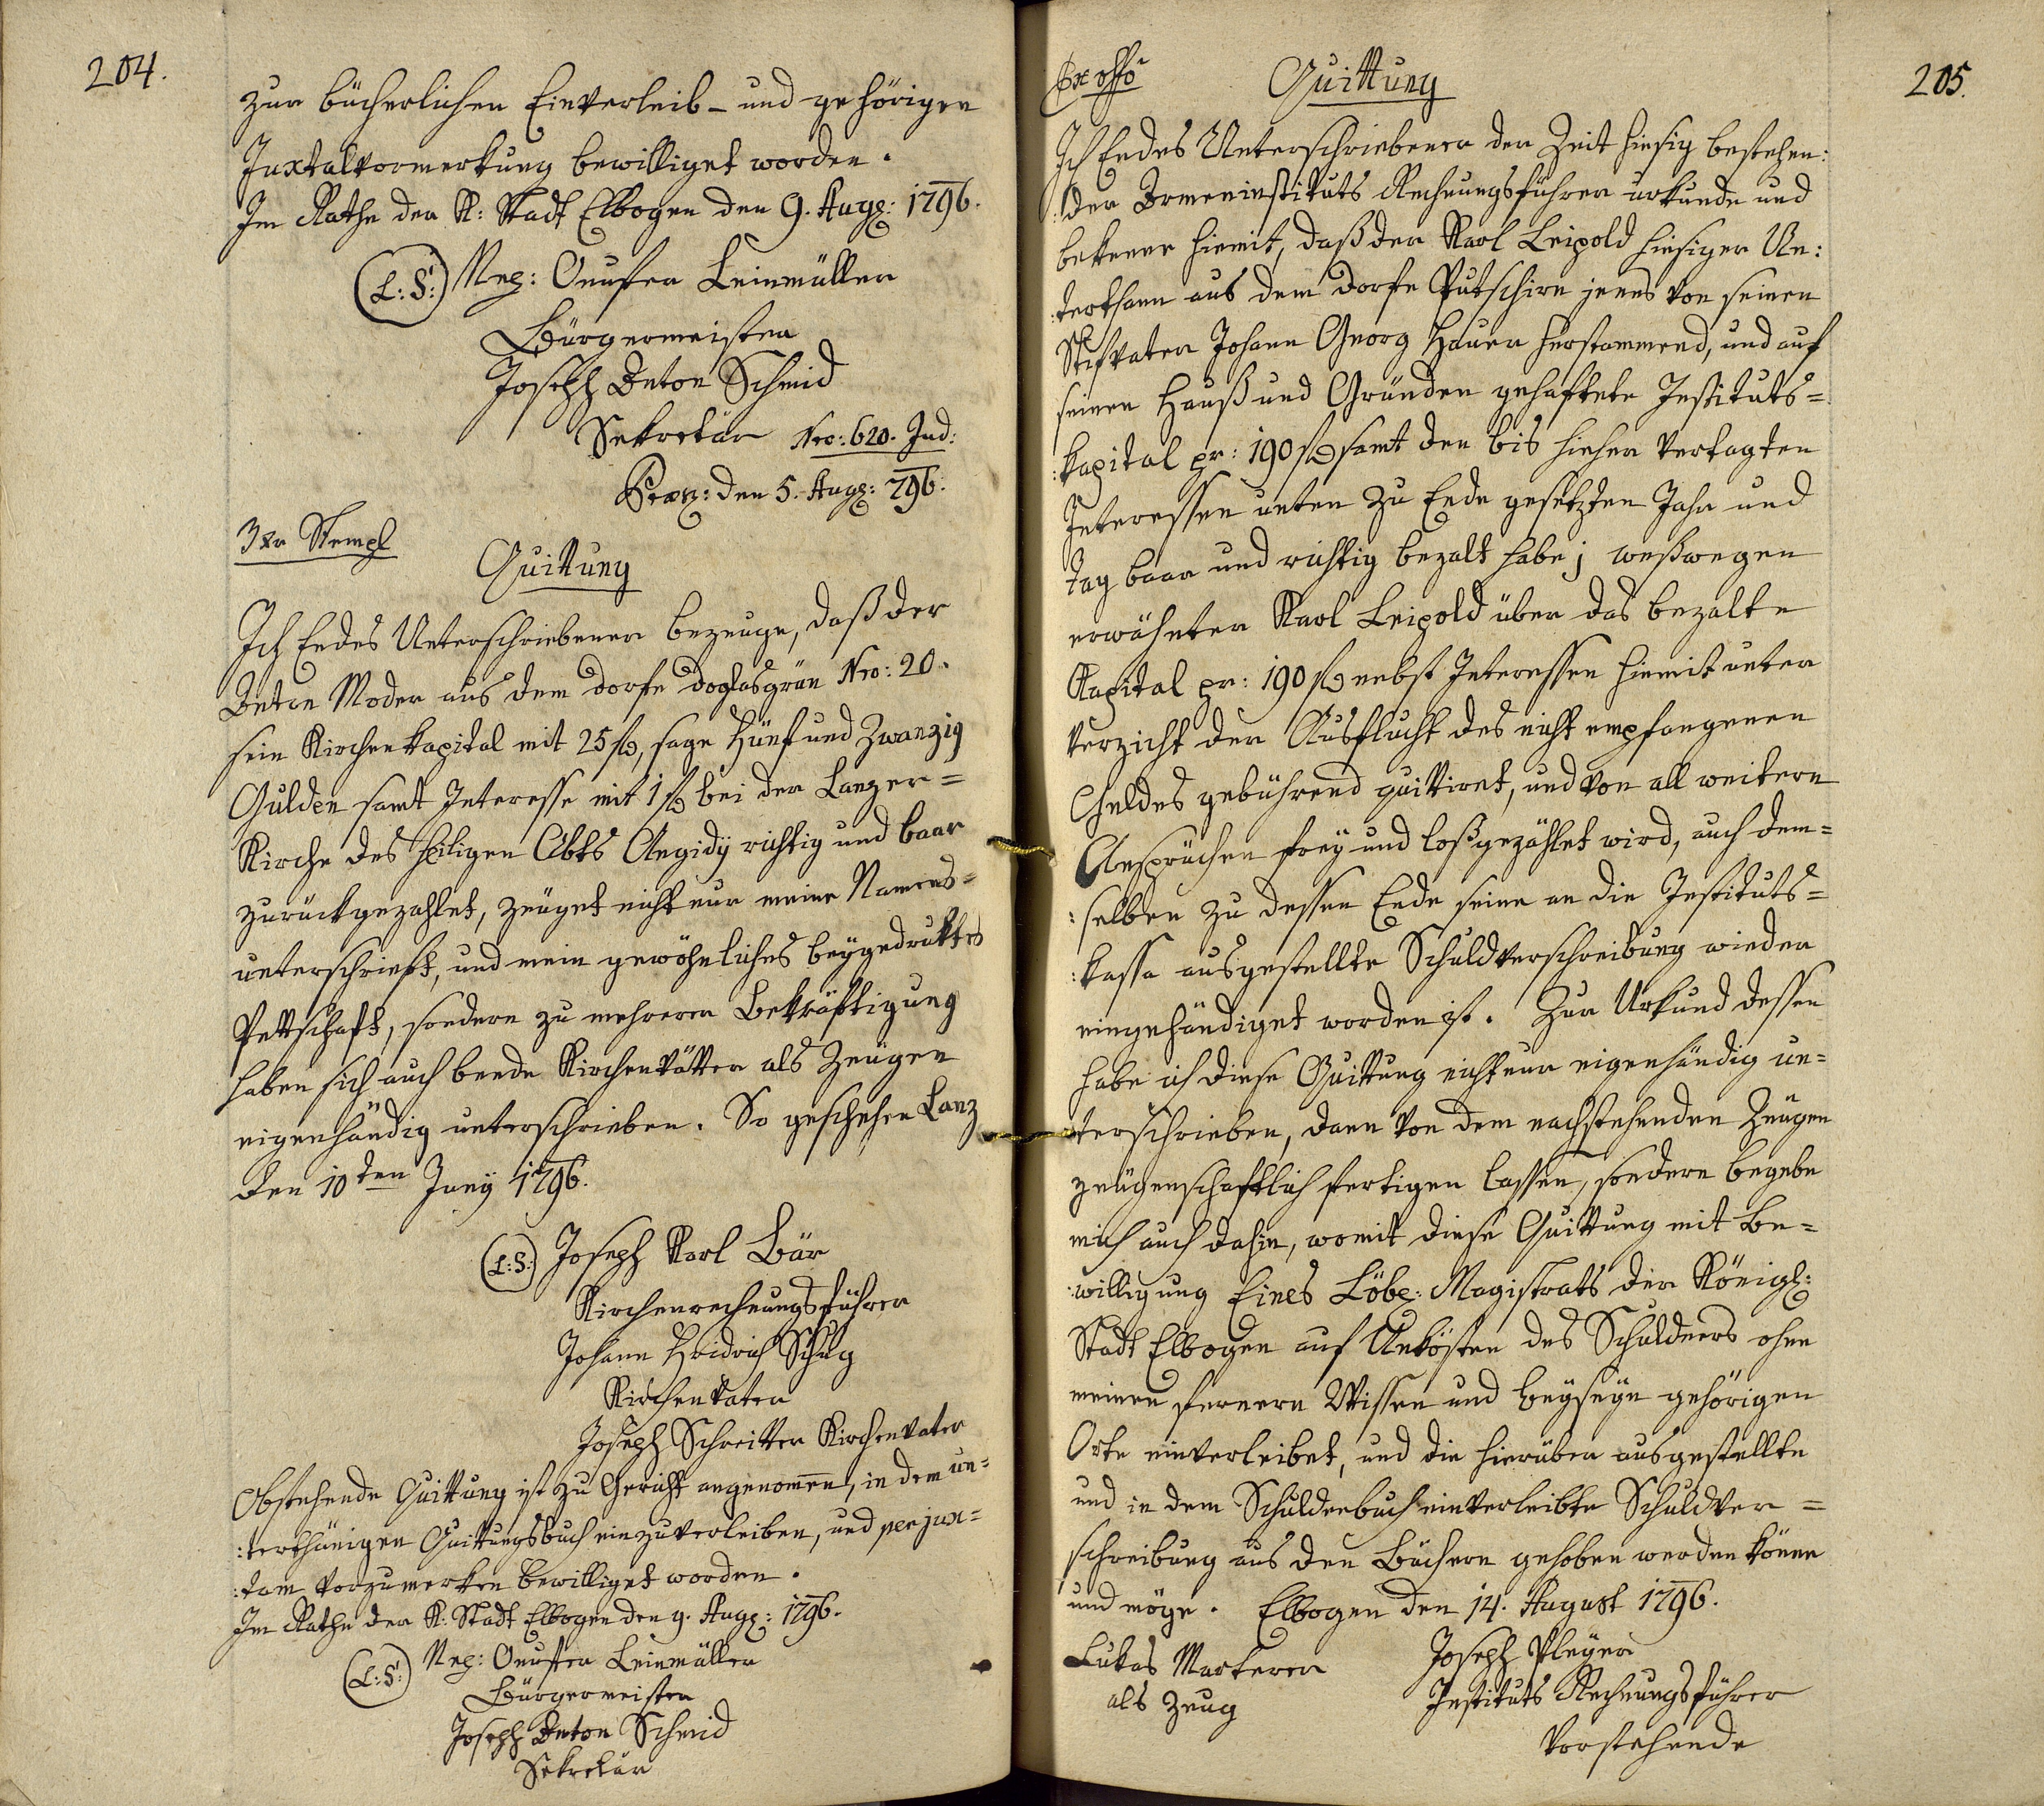 204.
zur bücherlichen Einverleib- und gehörigen
Juxtalvormerkung bewilliget worden.
Im Rathe der K: Stadt Elbogen den 9. Augg: 1796.
(L:S:) Neg: Onufer Leinmüller
Bürgermeister
Joseph Anton Schmid
Sekretär Nro: 620. Jud:
Præs: den 5. Augg: 796.
3 Xr Stempl
Quittung
Ich Endes Unterschriebener bezeuge, daß der
Anton Moder aus dem Dorfe Doglasgrün Nro: 20.
sein Kirchenkapital mit 25 f, sage Fünf und Zwanzig
Gulden samt Interesse mit 1 f bei der Lanzer=
Kirche des heiligen Abts Aegidÿ richtig und baar
zurückgezahlet, zeüget nicht nur meine Namens=
unterschrieft, und mein gewöhnliches beÿgedruktes
Pettschaft, sondern zu mehrerer Bekräftigung
haben sich auch beede Kirchenvätter als Zeügen
eigenhändig unterschrieben. So geschehen Lanz
den 10ten Junÿ 1796.
(L:S:) Joseph Karl Bär
Kirchenrechnungsführer
Johann Heidrich Schug
Kirchenvater
Joseph Schreitter Kirchenvater
Obstehende Quittung ist zu Gericht angenomen, in dem un=
:terthänigen Quittungsbuch einzuverleiben, und per jux=
:tam vorzumerken bewilliget worden.
Im Rathe der K: Stadt Elbogen den 9. Augg: 1796.
(L:S:) Neg: Onufer Leinmüller
Bürgermeister
Joseph Anton Schmid
Sekretär
205.
Ex offo
Quittung
Ich Endes Unterschriebener der Zeit hiesig bestehen:
:der Armeninstituts Rechnungsführer urkunde und
bekenne hiemit, daß der Karl Leipold hiesiger Un:
:terthann aus dem Dorfe Putschirn jenes von seinen
Stifvater Johann Georg Hauer herstammend, und auf
seinen Hauß und Gründen gehaftete Instituts=
:kapital pr: 190 f samt den bis hieher vertagten
Interessen unten zu Ende gesetzten Jahr und
Tag baar und richtig bezalt habe; weßwegen
erwähnter Karl Leipold über das bezalte
Kapital pr: 190 f nebst Interessen hiemit unter
Verzicht der Ausflucht des nicht empfangenen
Geldes gebührend quittiret, und von all weitern
Ansprüchen freÿ und loßgezählet wird, auch dem=
:selben zu dessen Ende seine an die Instituts=
:kassa ausgestellte Schuldverschreibung wieder
eingehändiget worden ist. Zur Urkund dessen
habe ich diese Quittung nicht nur eigenhändig un=
:terschrieben, dann von dem nachstehenden Zeügen
zeügenschaftlich fertigen lassen, sondern begebe
mich auch dahin, womit diese Quittung mit Be=
:willigung Eines Löbl: Magistrats der Königl:
Stadt Elbogen auf Unkösten des Schuldners ohne
meinen fernern Wissen und beÿseÿn gehörigen
Orte einverleibet, und die hierüber ausgestellte
und in dem Schuldenbuch einverleibte Schuldver=
schreibung aus den Büchern gehoben werden könne
und möge. Elbogen den 14. August 1796.
Lukas Markerer Joseph Pleÿer
als Zeug Instituts Rechnungsführer
Vorstehende